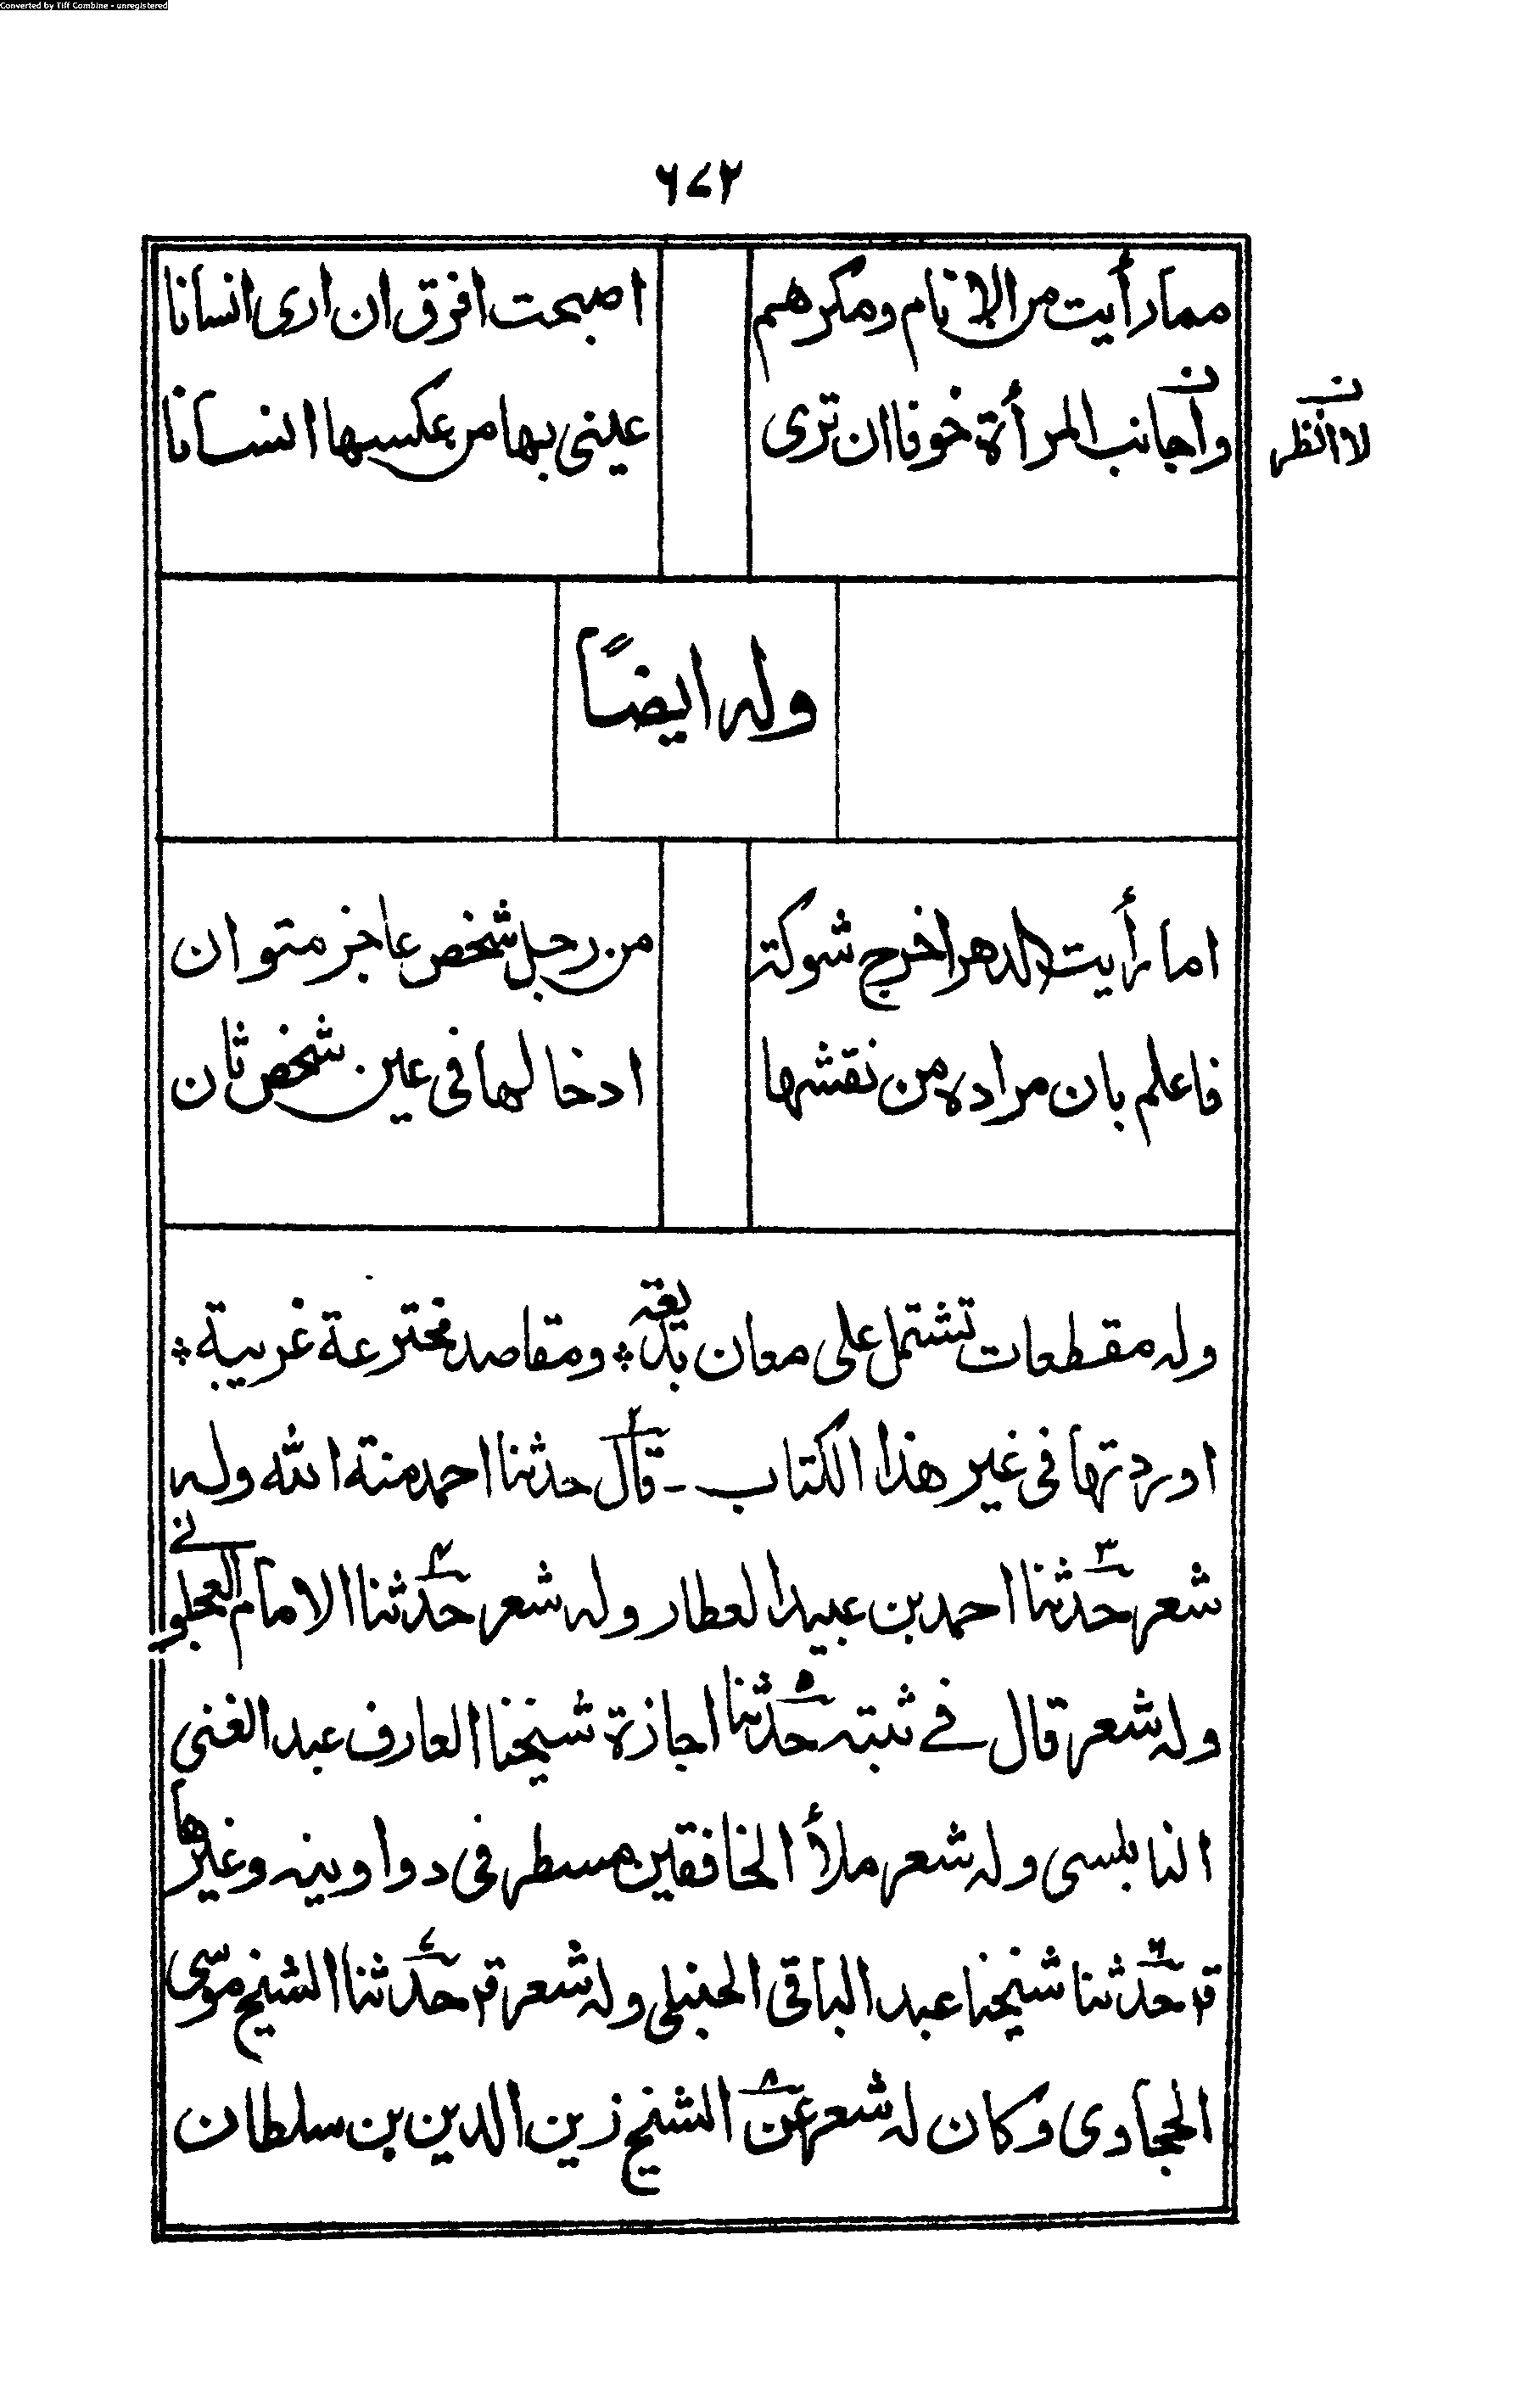 Converted by Tiff Combine - unregistered
٦٧٢
مما رأيت من الانام ومكرهم اصبحت افرق ان ارى انسانا
واجانب المرأة خوفا ان ترى عينى بها من عكسها انسانا
ن
لا انظر
وله ايضاً
اما رأيت الدهر اخرج شوكة من رجل شخص عاجز متوان
فاعلم بان مراده من نقشها ادخالها فى عين شخص ثان
وله مقطعات تشتمل على معان بديعة ۞ ومقاصد مخترعة غريبة ۞
اوردتها فى غير هذا الكتاب - قال حدثنا احمد منة الله وله
شعر حدثنا احمد بن عبيد العطار وله شعر حدثنا الامام العجلونے
وله شعر قال فے ثبته حدثنا اجازة شيخنا العارف عبد الغنى
النابلسى وله شعر ملأ الخافقين مسطر فى دواوينه وغيرها
قہ حدثنا شيخنا عبد الباقى الحنبلى وله شعر قہ حدثنا الشيخ موسى
الحجاوى وكان له شعر عن الشيخ زين الدين بن سلطان